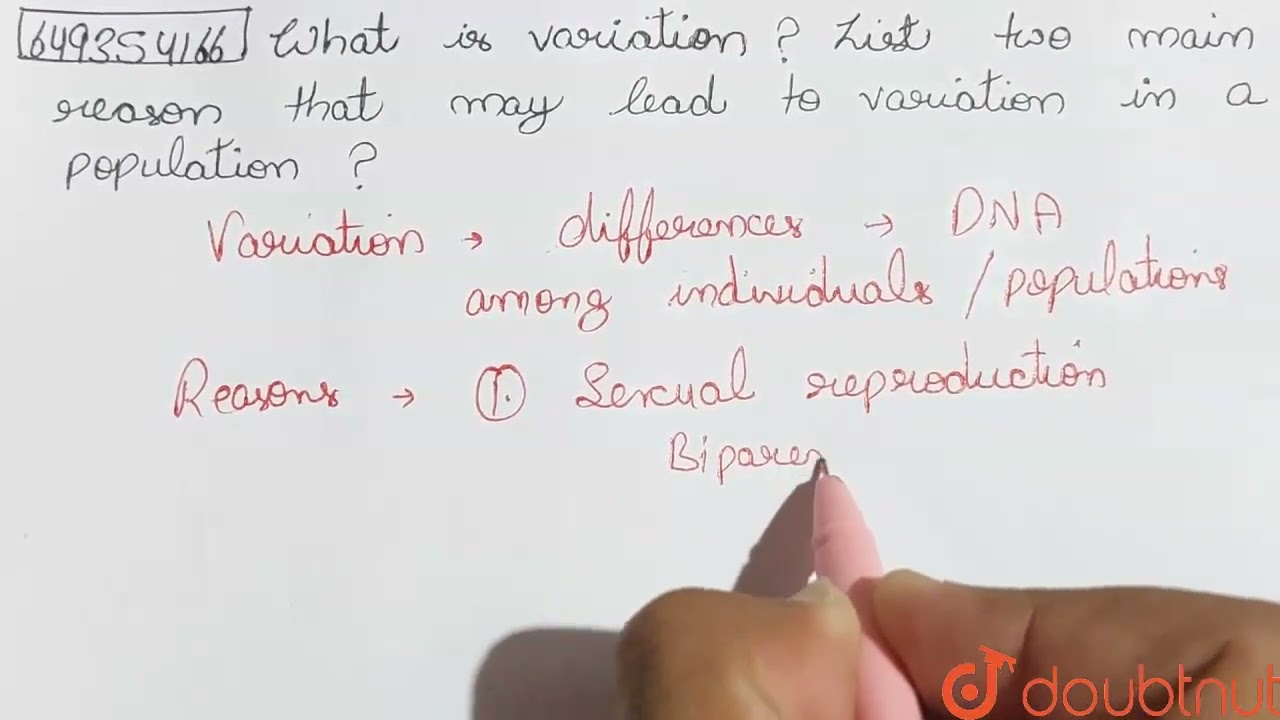 649354166 What is variation ? List two main
reason that may lead to variation in a
population ?
Variation → differences → DNA
among individuals / populations
Reasons → 1. Sexual reproduction
Biparen
doubtnut